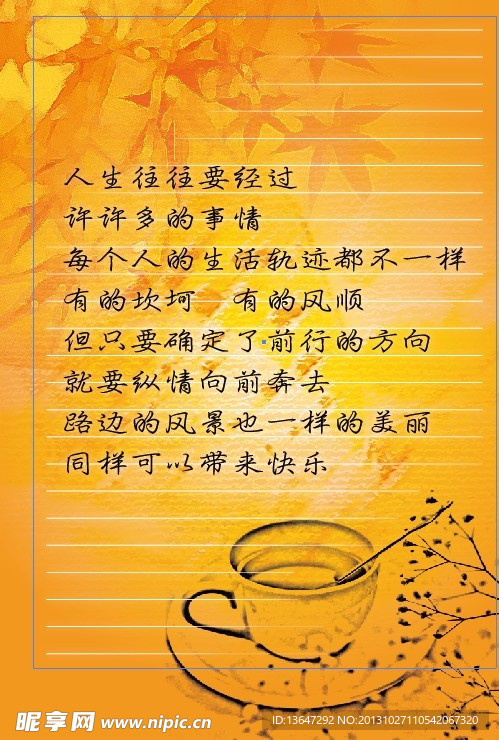 人生往往要经过
许许多的事情
每个人的生活轨迹都不一样
有的坎坷 有的风顺
但只要确定了前行的方向
就要纵情向前奔去
路边的风景也一样的美丽
同样可以带来快乐
昵享网 www.nipic.cn
ID:13647292 NO:20131027110542067320